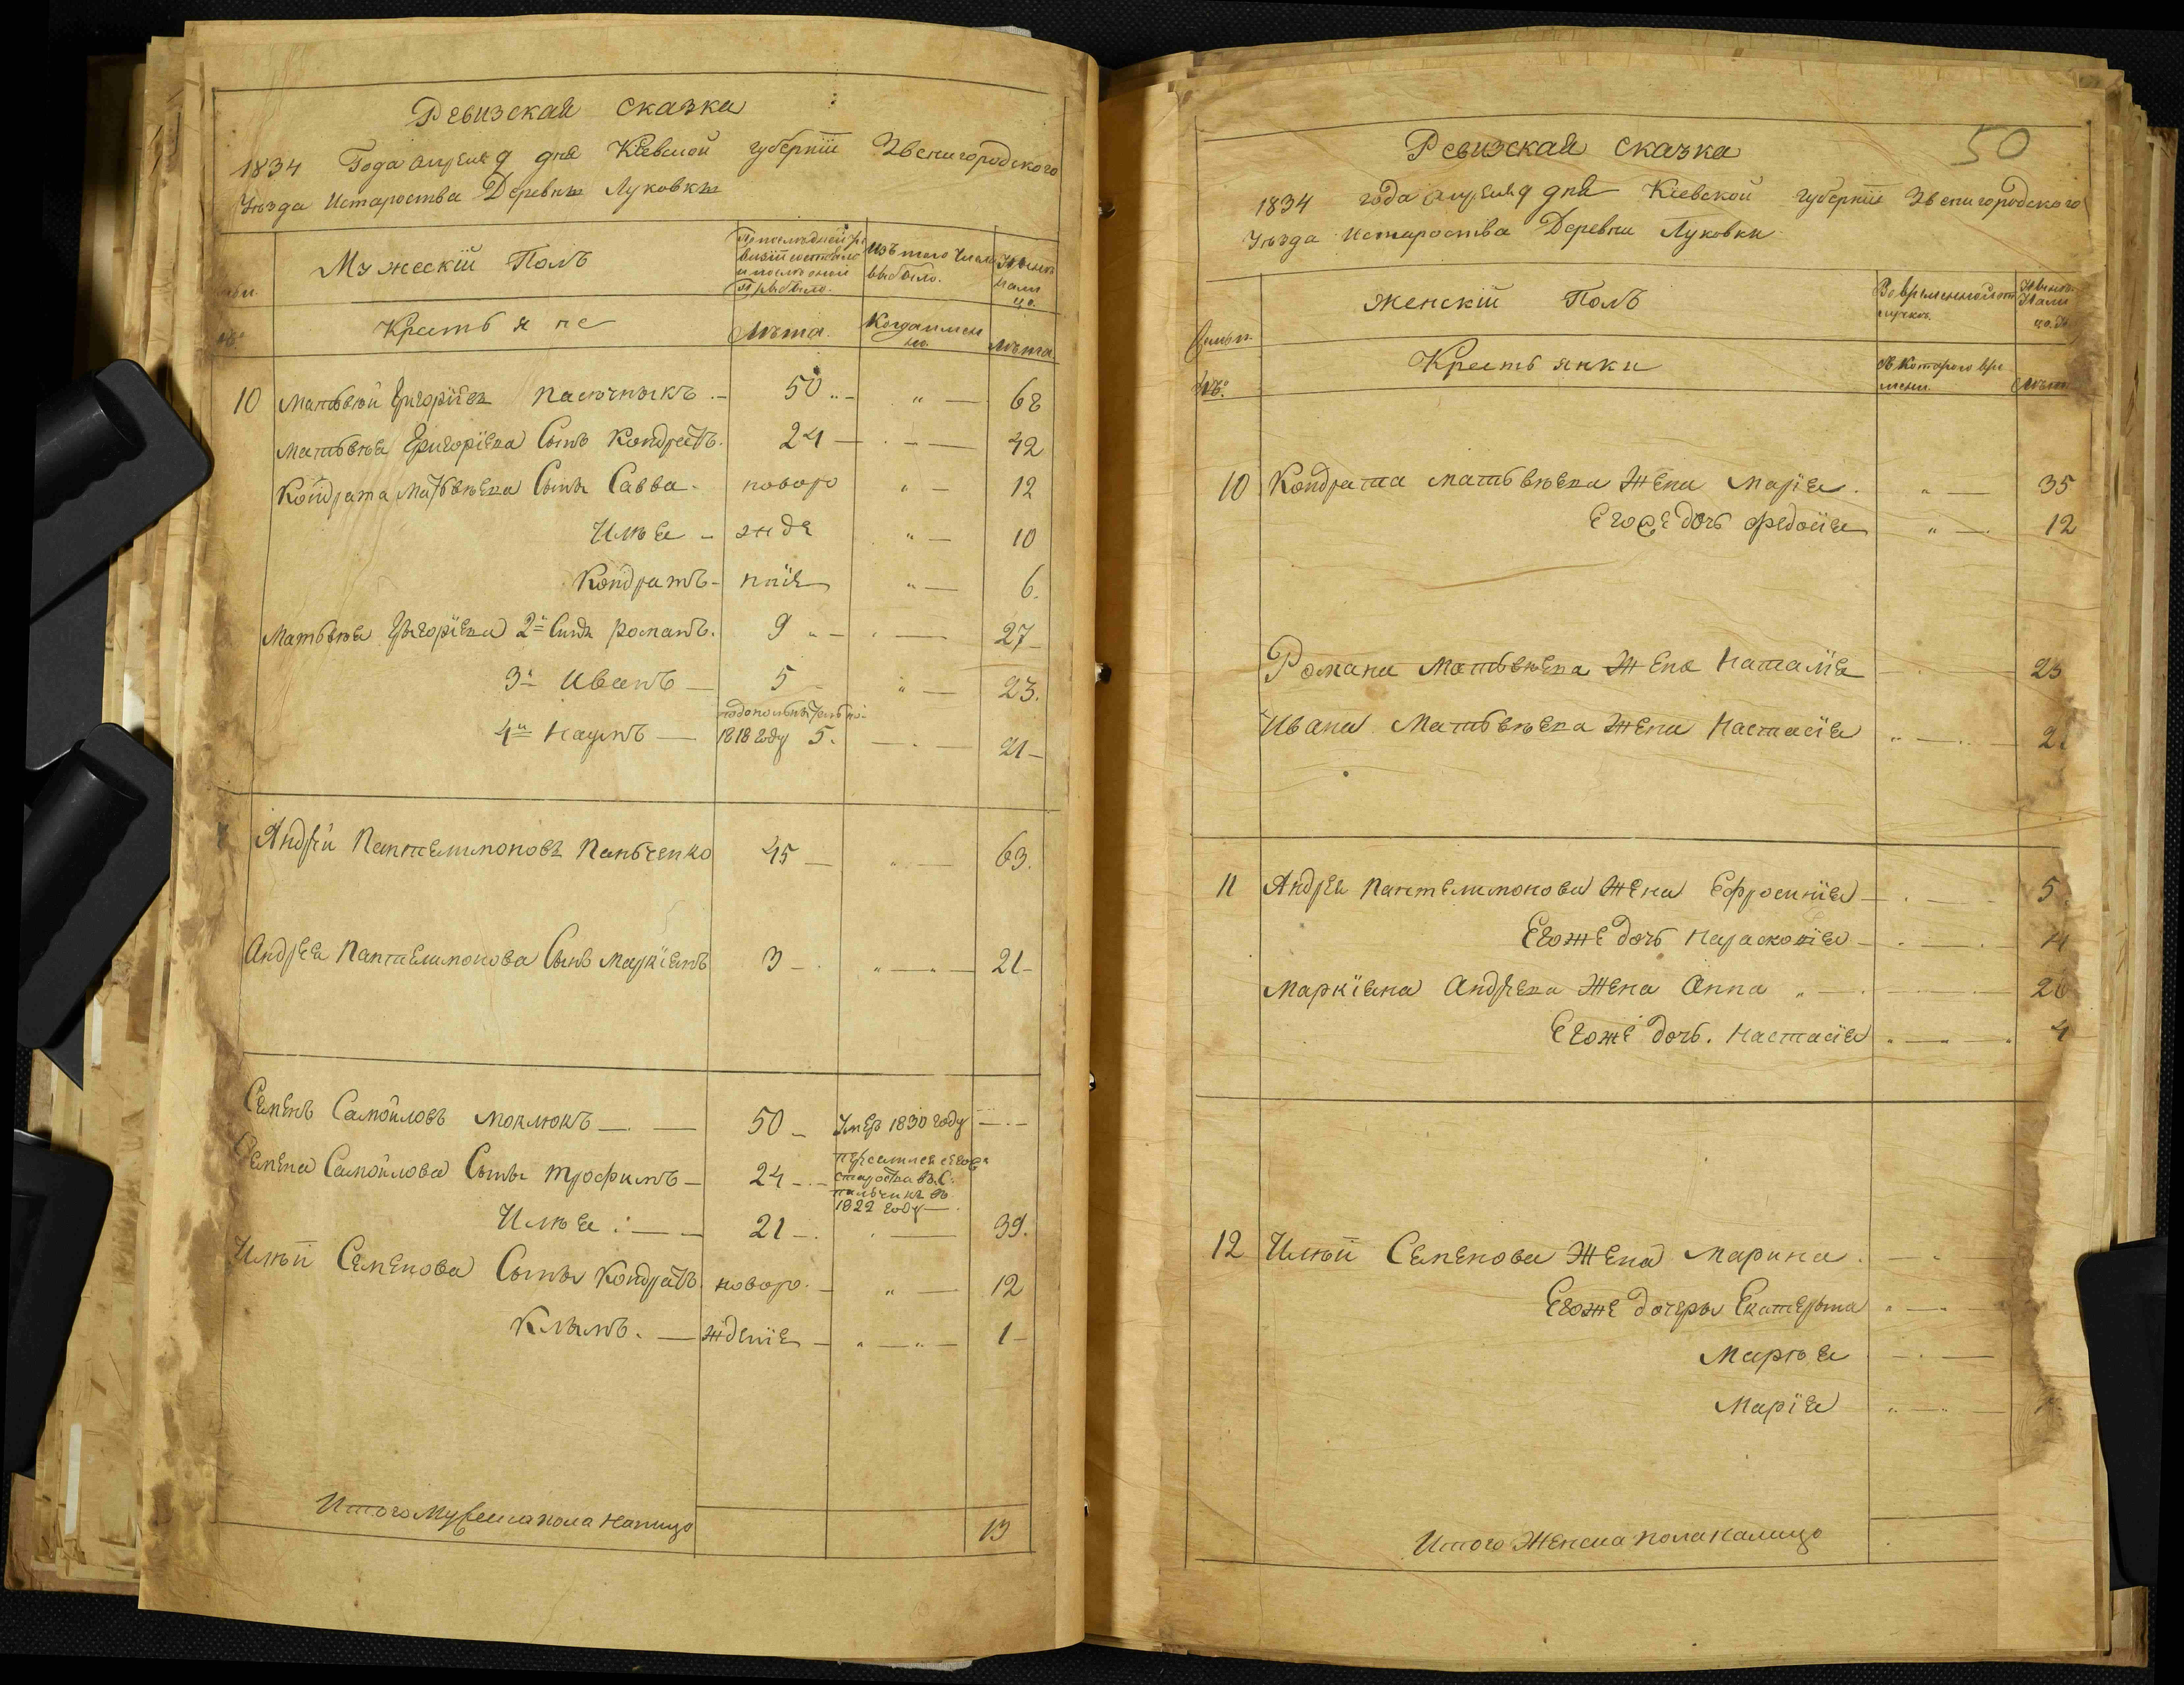 Ревизская сказка
1834 Года апреля 9 дня Кіевской губерніи Звенигородского
Уѣзда Истароства Деревнѣ Луковкѣ
Мужескій Полъ
По последней ре
визіи состояло
и после оной
Прыбыло.
Изъ того числа
выбыло.
Ныне
нали
цо.
Крестьяне
Лѣта.
Когда имен
но.
Лѣта
10 Матвѣй Григоріевъ Пасѣчныкъ 50 68
Матьвѣя Григоріева Сынъ Кондратъ. 24 42
Кондрата Матьвѣева Сыны Савва новоро 12
Илья жде 10
Кондратъ ніи 6.
Матьвѣя Григоріева 2й Сынъ романъ. 9 27
3й Иванъ 5 23.
4й Наумъ 1818 году 5. 21
Андрѣй Пантелимоновъ Панченко 45 63.
Андрея Пантелимонова Сынъ Маркіянъ 3 21
Семенъ Самойловъ Моклюкъ 50 Умер 1830 году
Семена Самойлова Сыны Трофимъ 24
1822 году
Илья 21 39.
Ильи Семенова Сыны Кондратъ новоро 12
Клымъ. жденіе 1
Итого Мужеска пола налицо 13
50
Ревизская сказка
1834 года апреля 9 дня Кіевской Губерніи Звенигородского
Уѣзда Истароства Деревни Луковки
Семьи
№.
женскій Полъ
Во временной от
лучке.
Ныне
Нали
цо.
Крестьянки
Съ которого вре
мени.
Лѣта
10 Кондрата Матьвѣева Жена Марія. 35
Егоже дочь Федосія 12
Романа Матьвѣева Жена Наталія 25
Ивана Матьвѣева Жена Настасія
11 Андрея Пантелимонова Жена Ефросинія
Егоже дочь Парасковія
Маркіяна Андреева Жена Анна 26
Егоже дочь. Настасія 4
12 Ильи Семенова Жена Марина.
Егоже дочеры Екатерына
Марѣя
Марія
Итого Женска пола налицо